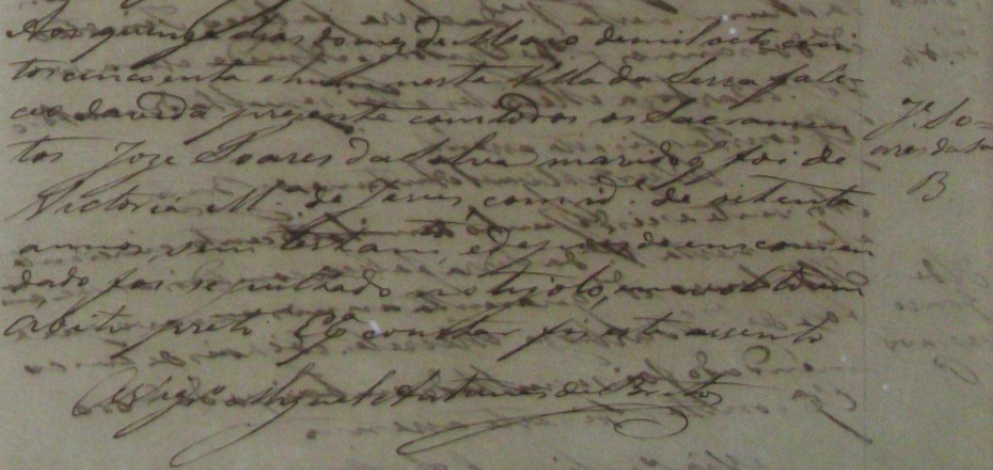 Aos quinze dias do mez de Março de mil oitocen
tos cincoenta e hum nesta Villa da Serra fale-
ceo da vida prezente com todos os Sacramen
tos Joze Soares da Silva marido q foi de
Victoria M.ª de Jesus com id.e de oitenta
annos, sem testam.to, e depois de encomen
dado foi sepultado nesta involto em
abito preto. E p.ª constar fiz este assento
O Vig.ro Miguel Antunes de Brito
J.e So=
ares da Sa
B